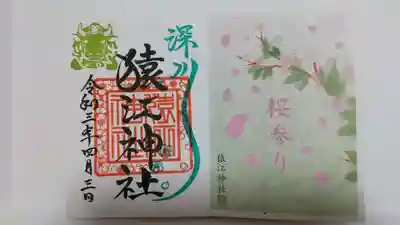 深川
猿江神社
令和三年四月三日
桜参り
猿江神社